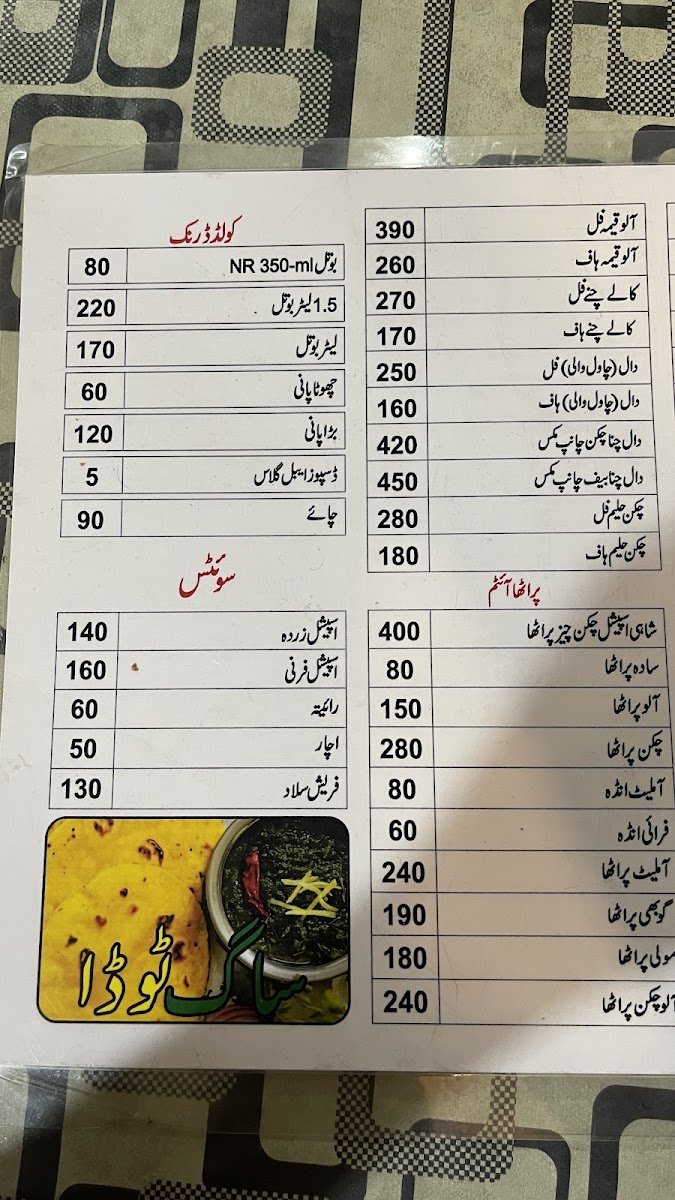 آلو قیمہ فل 390
آلو قیمہ ہاف 260
کالے چنے فل 270
کالے چنے ہاف 170
دال (چاول والی) فل 250
دال (چاول والی) ہاف 160
دال چنا چکن چانپ مکس 420
دال چنا بیف چانپ مکس 450
چکن حلیم فل 280
چکن حلیم ہاف 180
پراٹھا آئٹم
شاہی اسپیشل چکن چیز پراٹھا 400
سادہ پراٹھا 80
آلو پراٹھا 150
چکن پراٹھا 280
آملیٹ انڈہ 80
فرائی انڈہ 60
آملیٹ پراٹھا 240
گوبھی پراٹھا 190
مولی پراٹھا 180
آلو چکن پراٹھا 240
کولڈ ڈرنک
بوتل NR 350-ml 80
1.5 لیٹر بوتل 220
لیٹر بوتل 170
چھوٹا پانی 60
بڑا پانی 120
ڈسپوزایبل گلاس 5
چائے 90
سوئٹس
اسپیشل زردہ 140
اسپیشل فرنی 160
رائیتہ 60
اچار 50
فریش سلاد 130
ساگ ٹوڈا